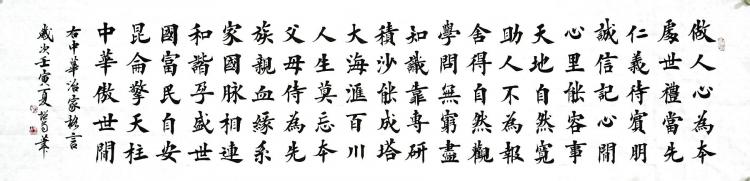 做人心為本
處世禮當先
仁義待賓朋
誠信記心間
心里能容事
天地自然寬
助人不為報
舍得自然觀
學問無窮盡
知識靠專研
積沙能成塔
大海滙百川
人生莫忘本
父母侍為先
族親血緣系
家國脉相連
和諧孕盛世
國富民自安
昆侖擎天柱
中華傲世間
右中華治家格言
歲次壬寅夏筆